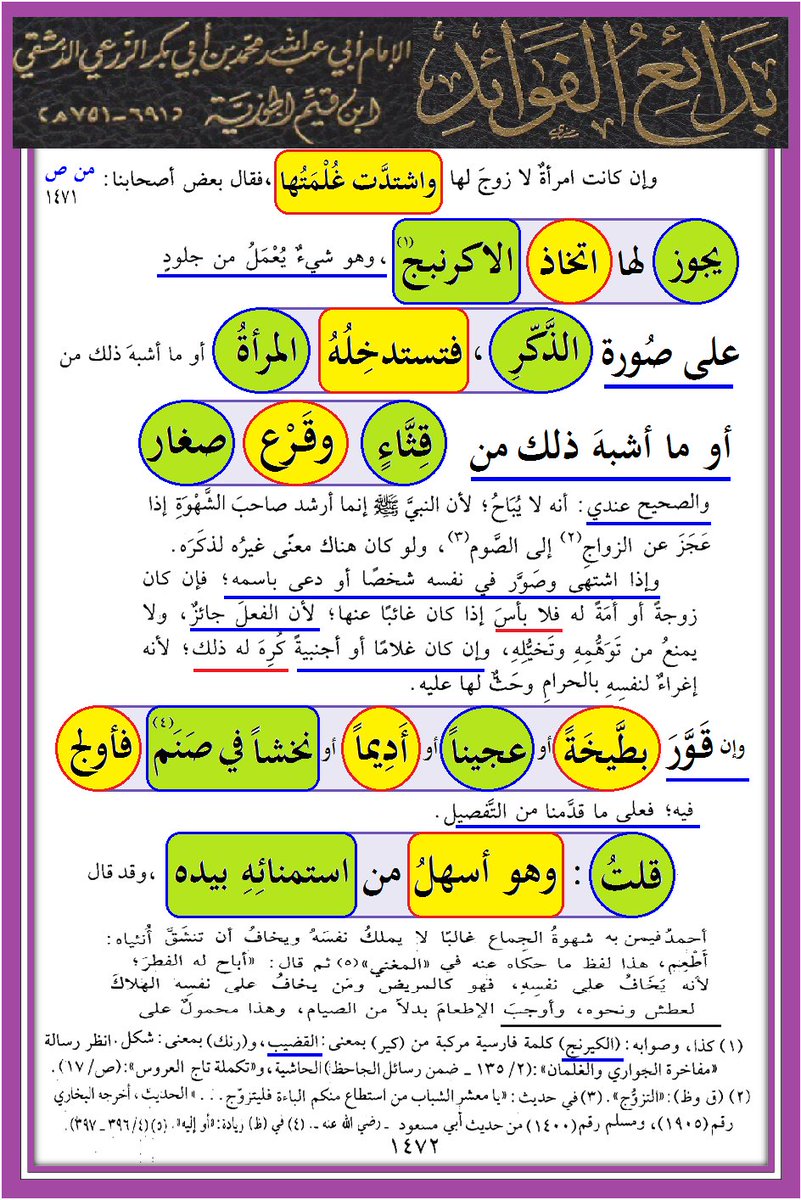 بَدَائِعُ الفَوَائِد
الإمام أبي عبد الله محمد بن أبي بكر الزرعي الدمشقي
ابن قيم الجوزية
(٦٩١-٧٥١هـ)
وإن كانت امرأةٌ لا زوجَ لها واشتدَّت غُلْمَتُها ،فقال بعض أصحابنا: من ص ١٤٧١
يجوز لها اتخاذ الاكرنبج(١) ،وهو شيءٌ يُعْمَلُ من جلودٍ
على صُورة الذَّكَرِ ، فتستدخِلُهُ المرأةُ أو ما أشبهَ ذلك من
أو ما أشبهَ ذلك من قِثَّاءٍ وقَرْع صغار
والصحيح عندي: أنه لا يُبَاحُ؛ لأن النبيَّ ﷺ إنما أرشد صاحبَ الشَّهْوَةِ إذا
عَجَزَ عن الزواجِ(٢) إلى الصَّوم(٣)، ولو كان هناك معنًى غيرُه لذكَرَه.
وإذا اشتهى وصَوَّر في نفسه شخصًا أو دعى باسمه؛ فإن كان
زوجةً أو أمَةً له فلا بأسَ إذا كان غائبًا عنها؛ لأن الفعلَ جائزٌ، ولا
يمنعُ من تَوَهُّمِهِ وتَخيُّلِهِ، وإن كان غلامًا أو أجنبيةً كُرِهَ له ذلك؛ لأنه
إغراءٌ لنفسِهِ بالحرامِ وحَثٌّ لها عليه.
وإن قَوَّرَ بطَّيخَةً أو عجيناً أو أَدِيماً أو نخشاً في صَنَم(٤) فأولج
فيه؛ فعلى ما قدَّمنا من التَّفصيل.
قلتُ: وهو أسهلُ من استمنائِهِ بيده ،وقد قال
أحمدُ فيمن به شهوةُ الجِماعِ غالبًا لا يملكُ نفسَهُ ويخافُ أن تنشقَّ أُنثياه:
أَطْعِم، هذا لفظ ما حكاه عنه في «المغني»(٥) ثم قال: «أباح له الفطرَ؛
لأنه يَخَافُ على نفسِهِ، فهو كالمريضِ ومَن يخافُ على نفسِهِ الهلاكَ
لعطشٍ ونحوِه، وأوجبَ الإطعامَ بدلاً من الصيام، وهذا محمولٌ على
(١) كذا، وصوابه: (الكيرنج) كلمة فارسية مركبة من (كير) بمعنى: القضيب، و(رنك) بمعنى: شكل. انظر رسالة
«مفاخرة الجواري والغلمان»: (٢/ ١٣٥ ـ ضمن رسائل الجاحظ) الحاشية، و«تكملة تاج العروس»: (ص/ ١٧).
(٢) (ق وظ): «التزوُّج». (٣) في حديث: «يا معشر الشباب من استطاع منكم الباءة فليتزوّج...» الحديث، أخرجه البخاري
رقم (١٩٠٥)، ومسلم رقم (١٤٠٠) من حديث أبي مسعود ـ رضي الله عنه ـ. (٤) في (ظ) زيادة: «أو إليه». (٥) (٤/ ٣٩٦ ـ ٣٩٧).
١٤٧٢